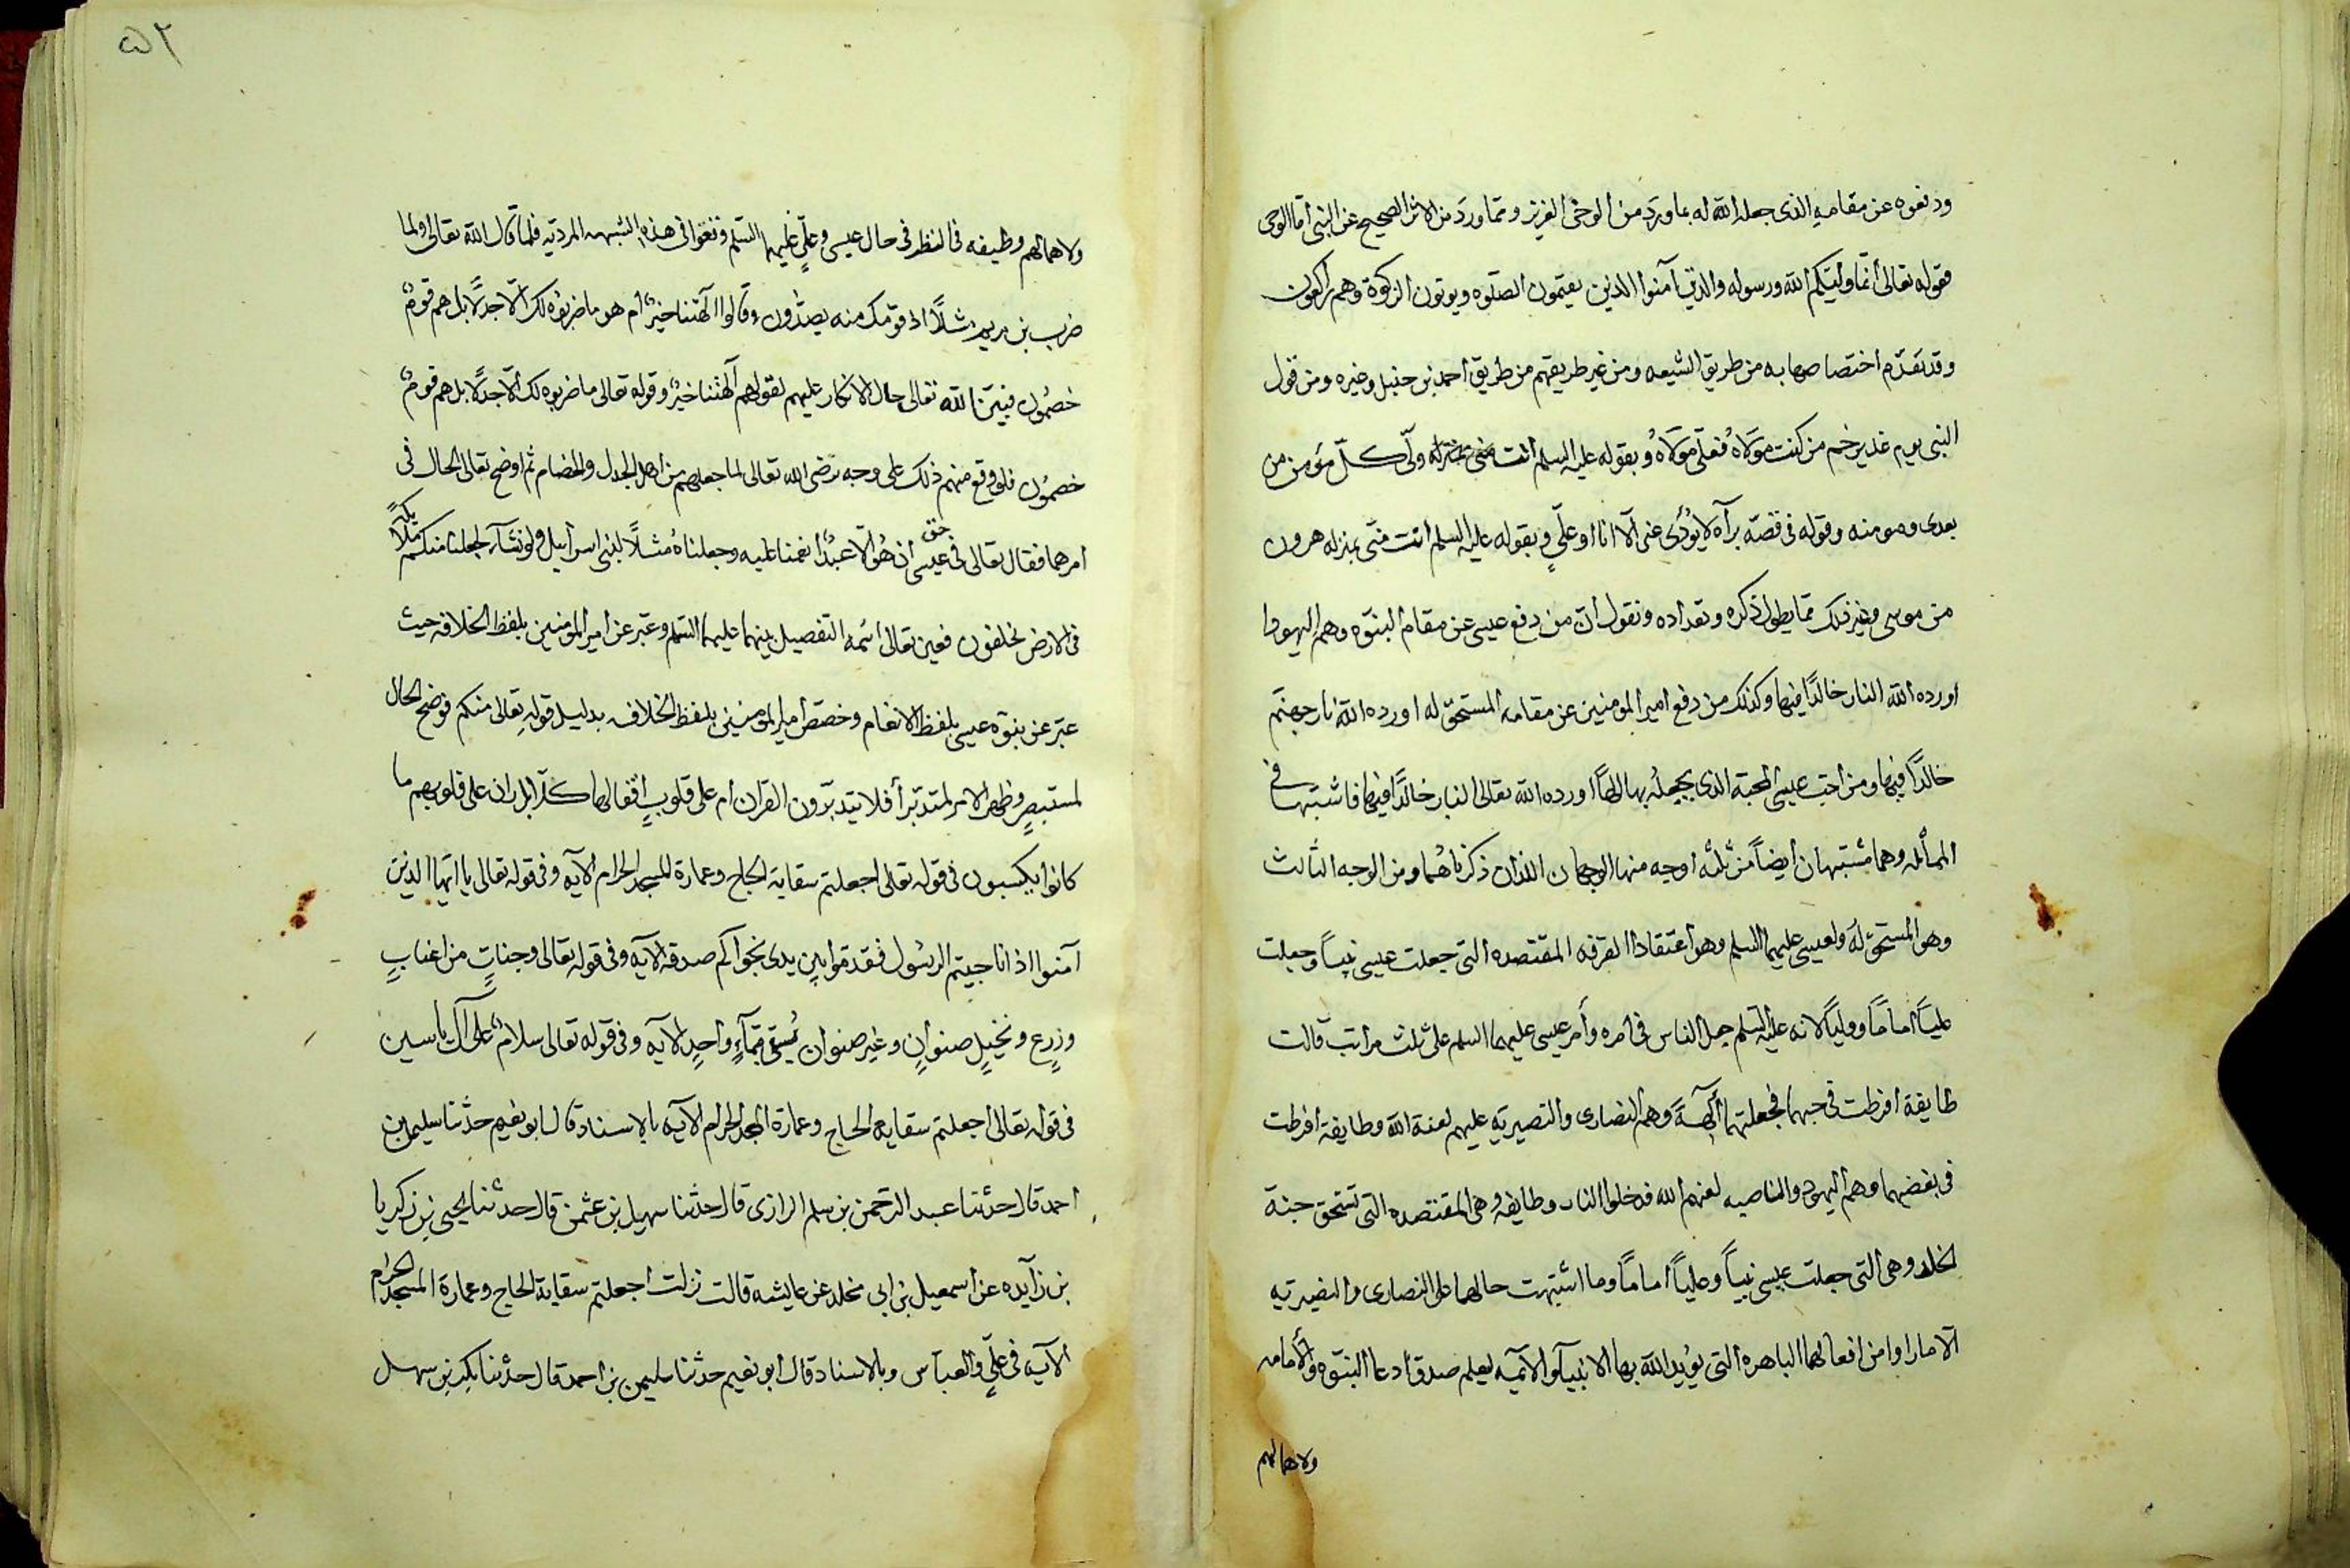 ودفعوه عن مقامه الذى جعله الله له بما ورد من الوحى العزيز ومما ورد من الاثر الصحيح عن النبى اما الوحى
فقوله تعالى انما وليكم الله ورسوله والذين آمنوا الذين يقيمون الصلوه ويوتون الزكوة وهم راكعون
وقد تقدم اختصاصها به من طريق الشيعه ومن غير طريقهم من طريق احمد بن حنبل وغيره ومن قول
النبى يوم غدير خم من كنت مولاه فعلى مولاه وبقوله عليه السلم انت ولى كل مؤمن من
بعدى ومومنه وقوله فى قصة برآه لا يؤدى عنى الا انا او على وبقوله عليه السلم انت منى بمنزله هرون
من موسى وغير ذلك مما يطول ذكره وتعداده ونقول ان من دفع عيسى عن مقام النبوه وهم اليهود
اورده الله النار خالدًا فيها وكذلك من دفع امير المومنين عن مقامه المستحق له اورده الله نار جهنم
خالدًا فيها ومن احب عيسى المحبة الذى يجعله بها الهًا اورده الله تعالى النار خالدًا فيها فاشتبها فى
المسأله وهما مشتبهان ايضاً من ثلثه اوجه منها الوجهان اللذان ذكرناهما ومن الوجه الثالث
وهو المستحق له ولعيسى عليهما السلم وهو اعتقاد الفرقه المقتصده التى جعلت عيسى نبياً وجعلت
علياً اماماً وولياً لانه عليه السلم جعل الناس فى امره وأمر عيسى عليهما السلم على ثلث مراتب قالت
طايفة افرطت فى حبهما فجعلتهما آلهةً وهم النصارى والنصيريه عليهم لعنة الله وطايفة افرطت
فى بغضهما وهم اليهود والناصبه لعنهم الله فدخلوا النار وطايفه وهى المقتصده التى تستحق جنة
الخلد وهى التى جعلت عيسى نبياً وعلياً اماماً وما اشتبهت حالهما على النصارى والنصيريه
الا ما راوا من افعالهما الباهره التى يؤيد الله بها الانبيآ والآئمه ليعلم صدق ادعا النبوه والأمامه
ولاهمالهم
٥٢
ولاهمالهم وظيفه فى النظر فى حال عيسى وعلى عليهما السلم وقعوا فى هذه الشبهه المرديه فلما قال الله تعالى ولما
ضرب بن مريم مثلاً اذا قومك منه يصدون وقالوا آلهتنا خير ام هو ما ضربوه لك الا جدلًا بل هم قوم
خصمون فبين الله تعالى حال الانكار عليهم لقولهم آلهتنا خير وقوله تعالى ما ضربوه لك الا جدلًا بل هم قوم
خصمون فلو وقع منهم ذلك على وجه ترضى الله تعالى لما جعلهم من اهل الجدل والخصام ثم اوضح تعالى الحال فى
امرهما فقال تعالى فى حق عيسى ان هو الا عبد انعمنا عليه وجعلناه مثلاً لبنى اسرآييل ولو نشآء لجعلنا منكم ملائكةً
فى الارض يخلفون فعين تعالى التفصيل بينهما عليهما السلم وعبر عن امير المومنين بلفظ الخلافه حيث
عبر عن نبوه عيسى بلفظ الانعام وخصص امير المومنين بلفظ الخلافه بدليل قوله تعالى منكم فوضح الحال
لمستبصرٍ وظهر الامر لمتدبر أفلا يتدبرون القران ام على قلوبٍ اقفالها كلا بل ران على قلوبهم ما
كانوا يكسبون فى قوله تعالى اجعلتم سقاية الحاج وعمارة المسجد الحرام الآيه وفى قوله تعالى يا ايها الذين
آمنوا اذا ناجيتم الرسول فقدموا بين يدى نجواكم صدقه الآيه وفى قوله تعالى وجناتٍ من اعنابٍ
وزرعٍ ونخيلٍ صنوانٍ وغير صنوان يُسقى بمآءٍ واحدٍ الآيه وفى قوله تعالى سلامٌ على آل ياسين
فى قوله تعالى اجعلتم سقايه الحاج وعمارة المسجد الحرام الآيه بالاسناد قال ابو نعيم حدثنا سليمن بن
احمد قال حدثنا عبد الرحمن بن سلم الرازى قال حدثنا سهيل بن عثمن قال حدثنا يحيى بن زكريا
بن زآيده عن اسمعيل بن ابى مخلد عن عايشه قالت نزلت اجعلتم سقاية الحاج وعمارة المسجد الحرام
الآيه فى علىٍ والعباس وبالاسناد قال ابو نعيم حدثنا سليمن بن احمد قال حدثنا بكر بن سهل